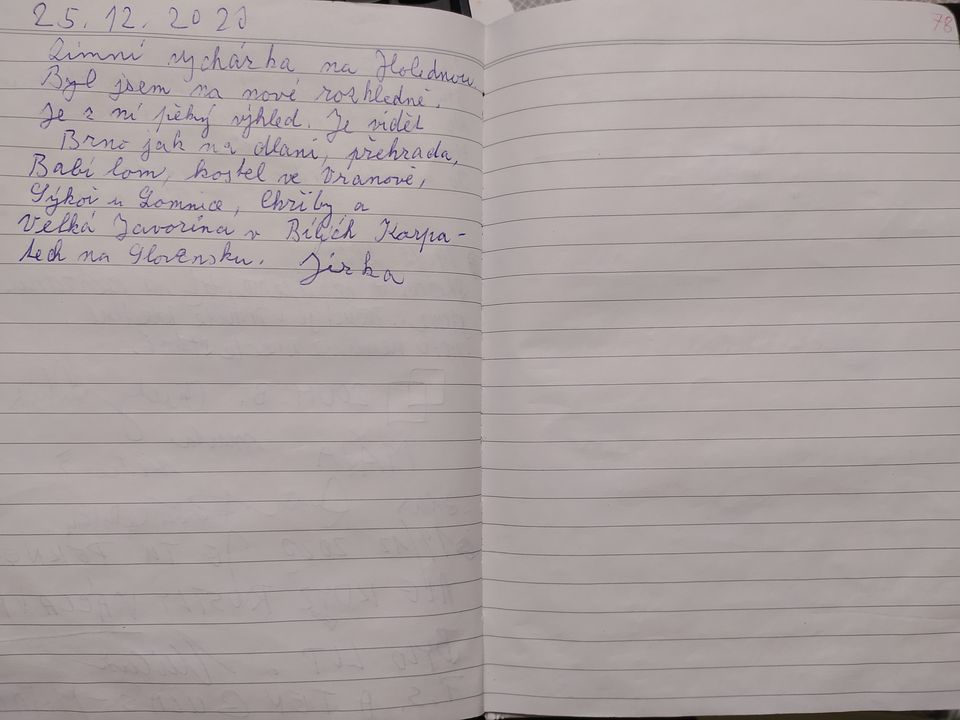 25. 12. 2020
Zimní vycházka na Holednou
Byl jsem na nové rozhledně.
Je z ní pěkný výhled. Je vidět
Brno jak na dlani, přehrada,
Babí lom, kostel ve Vranově,
Sýkoř u Lomnice, Chřiby a
Velká Javořina v Bílých Karpa-
tech na Slovensku. Jirka
78